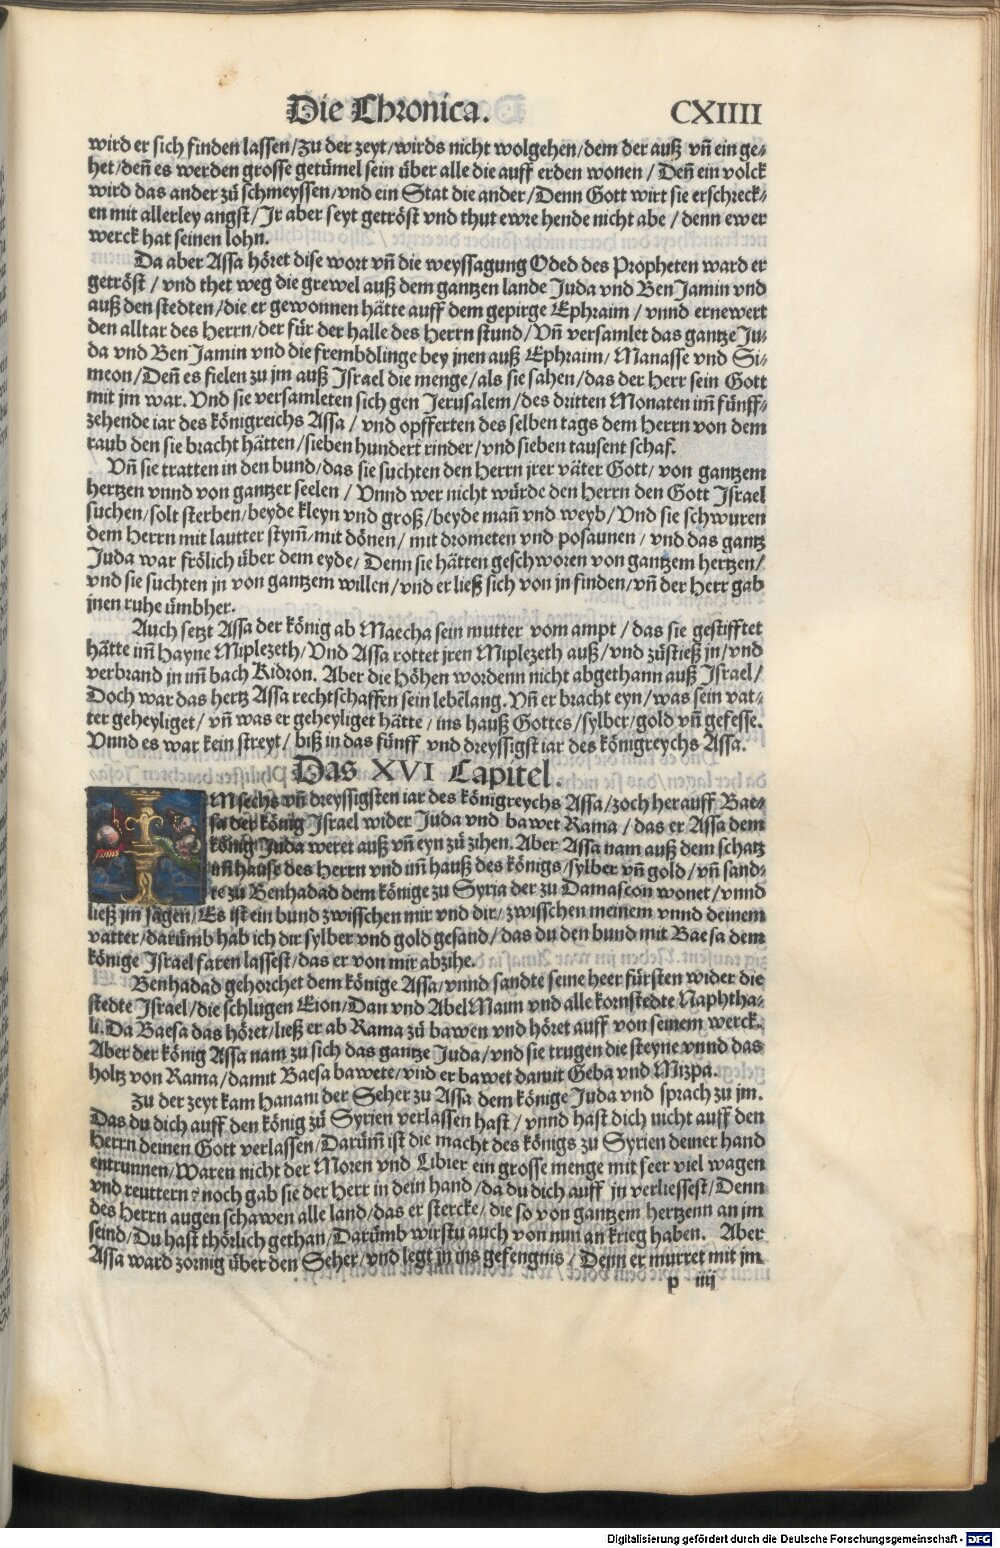 Die Chronica. CXIIII
wird er sich finden lassen/Zu der zeyt/wirds nicht wolgehen/dem der auß vñ ein ge-
het/deñ es werden grosse getümel sein über alle die auff erden wonen/Deñ ein volck
wird das ander zů schmeyssen/vnd ein Stat die ander/Denn Gott wirt sie erschreck-
en mit allerley angst/Jr aber seyt getröst vnd thut ewre hende nicht abe/denn ewer
werck hat seinen lohn.
Da aber Assa höret dise wort vñ die weyssagung Oded des Propheten ward er
getröst/vnd thet weg die grewel auß dem gantzen lande Juda vnd BenJamin vnd
auß den stedten/die er gewonnen hätte auff dem gepirge Ephraim/vnnd ernewert
den alltar des Herrn/der für der halle des Herrn stund/Vñ versamlet das gantze Ju-
da vnd BenJamin vnd die frembdlinge bey jnen auß Ephraim/Manasse vnd Si-
meon/Deñ es fielen zu jm auß Israel die menge/als sie sahen/das der Herr sein Gott
mit jm war. Vnd sie versamleten sich gen Jerusalem/des dritten Monaten im̃ fünff-
zehende iar des königreichs Assa/vnd opfferten des selben tags dem Herrn von dem
raub den sie bracht hätten/sieben hundert rinder/vnd sieben tausent schaf.
Vñ sie tratten in den bund/das sie suchten den Herrn jrer väter Gott/von gantzem
hertzen vnnd von gantzer seelen/Vnnd wer nicht würde den Herrn den Gott Israel
suchen/solt sterben/beyde kleyn vnd groß/beyde mañ vnd weyb/Vnd sie schwuren
dem Herrn mit lautter stym̃/mit dönen/mit drometen vnd posaunen/vnd das gantz
Juda war frölich über dem eyde/Denn sie hätten geschworen von gantzem hertzen/
vnd sie suchten jn von gantzem willen/vnd er ließ sich von jn finden/vñ der Herr gab
jnen ruhe ümbher.
Auch setzt Assa der könig ab Maecha sein mutter vom ampt/das sie gestifftet
hätte im̃ Hayne Miplezeth/Vnd Assa rottet jren Miplezeth auß/vnd zůstieß jn/vnd
verbrand in im̃ bach Kidron. Aber die Höhen wordenn nicht abgethann auß Israel/
Doch war das hertz Assa rechtschaffen sein lebēlang. Vñ er bracht eyn/was sein vat-
ter geheyliget/vñ was er geheyliget hätte/ins hauß Gottes/sylber/gold vñ gefesse.
Vnnd es war kein streyt/biß in das fünff vnd dreyssigst iar des königreychs Assa.
Das XVI Capitel.
IM sechs vñ dreyssigsten iar des königreychs Assa/zoch herauff Bae-
sa der könig Israel wider Juda vnd bawet Rama/das er Assa dem
könig Juda weret auß vñ eyn zů zihen. Aber Assa nam auß dem schatz
im̃ hause des Herrn vnd im̃ hauß des königs/sylber vñ gold/vñ sand-
te zu Benhadad dem könige zu Syria der zu Damascon wonet/vnnd
ließ jm sagen/Es ist ein bund zwisschen mir vnd dir/zwisschen meinem vnnd deinem
vatter/darümb hab ich dir sylber vnd gold gesand/das du den bund mit Baesa dem
könige Israel faren lassest/das er von mir abzihe.
Benhadad gehorchet dem könige Assa/vnnd sandte seine heer fürsten wider die
stedte Israel/die schlugen Eion/Dan vnd AbelMaim vnd alle kornstedte Naphtha-
li. Da Baesa das höret/ließ er ab Rama zů bawen vnd höret auff von seinem werck.
Aber der könig Assa nam zu sich das gantze Juda/vnd sie trugen die steyne vnnd das
holtz von Rama/damit Baesa bawete/vnd er bawet damit Geba vnd Mizpa.
Zu der zeyt kam Hanani der Seher zu Assa dem könige Juda vnd sprach zu jm.
Das du dich auff den könig zů Syrien verlassen hast/vnnd hast dich nicht auff den
Herrn deinen Gott verlassen/Darüm̃ ist die macht des königs zu Syrien deiner hand
entrunnen/Waren nicht der Moren vnd Libier ein grosse menge mit seer viel wagen
vnd reuttern? noch gab sie der Herr in dein hand/da du dich auff jn verliessest/Denn
des Herrn augen schawen alle land/das er stercke/die so von gantzem hertzenn an jm
seind/Du hast thörlich gethan/Darümb wirstu auch von nun an krieg haben. Aber
Assa ward zornig über den Seher/vnd legt jn ins gefengnis/Denn er murret mit jm
p iiij
Digitalisierung gefördert durch die Deutsche Forschungsgemeinschaft - DFG